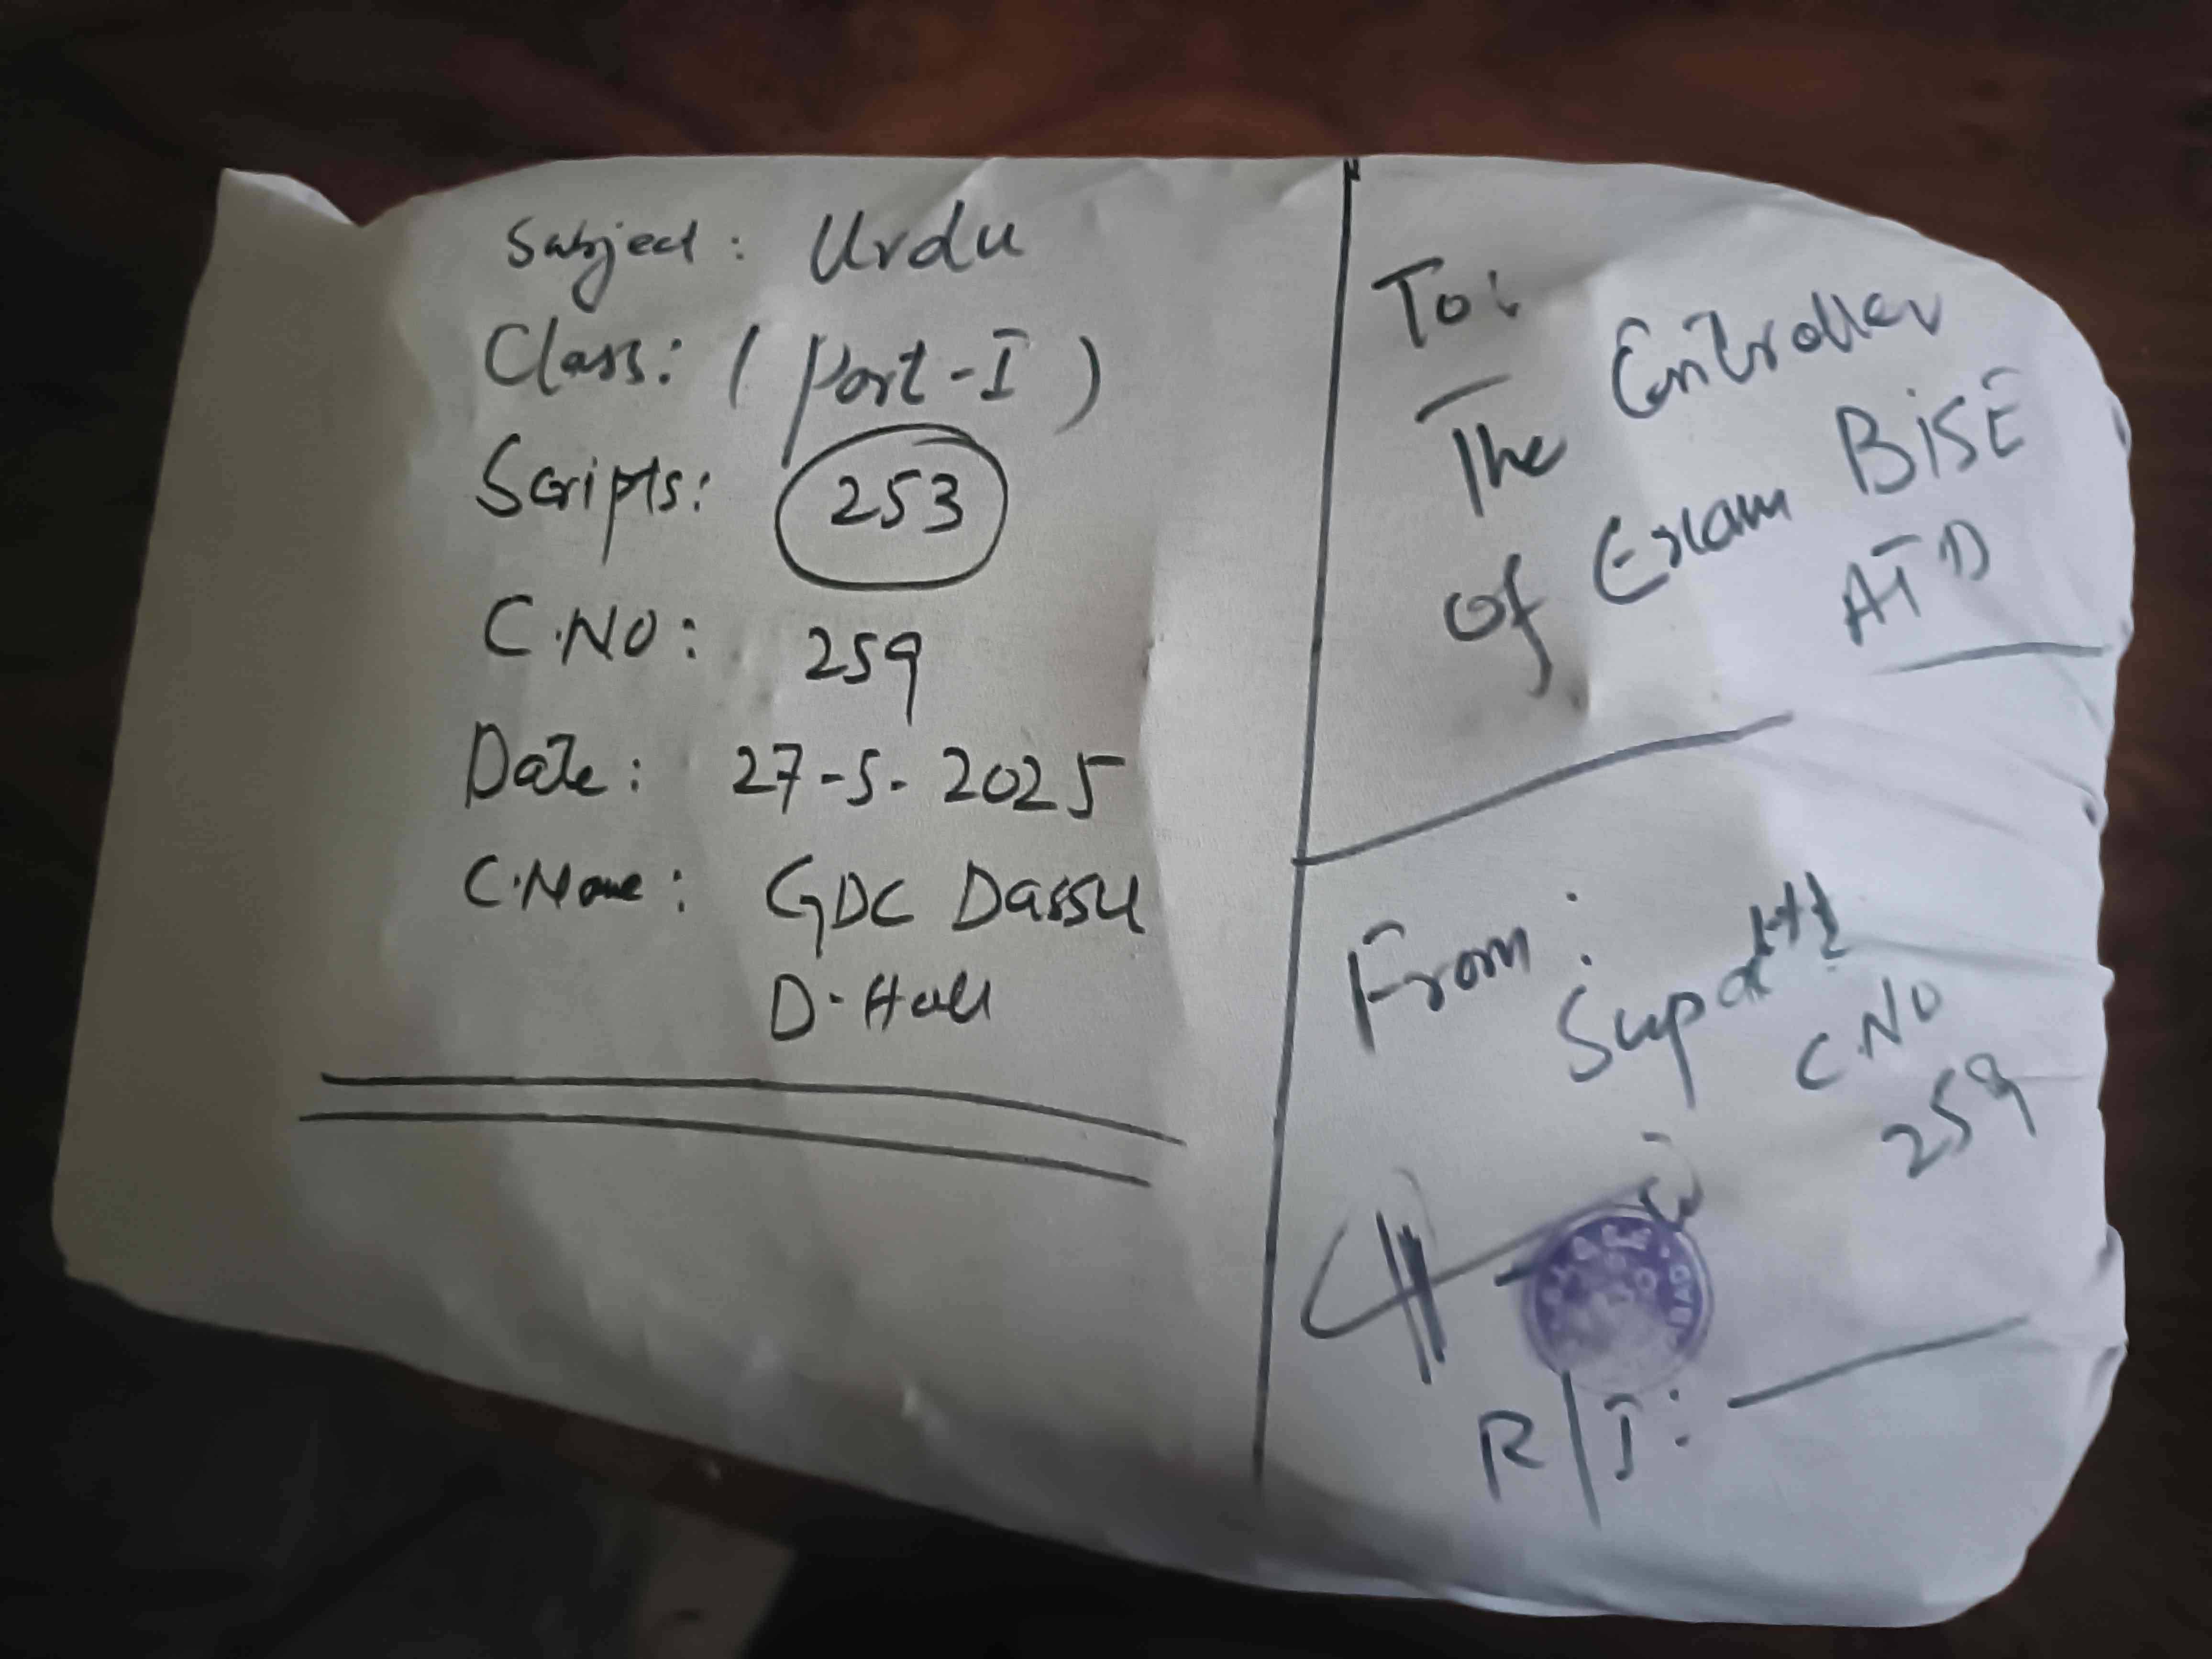 Subject: Urdu
Class: (Part-I)
Scripts: 253
C.NO: 259
Date: 27-5-2025
C.Name: GDC Dassu
D-Hall
To:
The Controller
of Exam BISE
ATD
From:
Supdtt
C.NO
259
R/I: